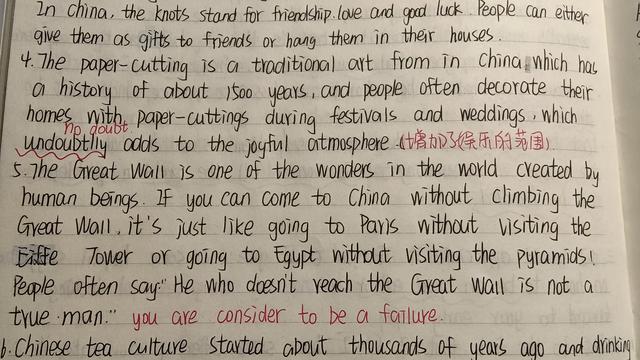 In China, the knots stand for friendship, love and good luck. People can either
give them as gifts to friends or hang them in their houses.
4. The paper-cutting is a traditional art from in China, which has
a history of about 1500 years, and people often decorate their
homes with paper-cuttings during festivals and weddings, which
no doubt
undoubtlly adds to the joyful atmosphere. (增加了娱乐的范围)
5. The Great Wall is one of the wonders in the world created by
human beings. If you can come to China without climbing the
Great Wall, it's just like going to Paris without visiting the
Eiffe Tower or going to Egypt without visiting the pyramids!
People often say:" He who doesn't reach the Great Wall is not a
true man." you are consider to be a failure.
6. Chinese tea culture started about thousands of years ago and drinking